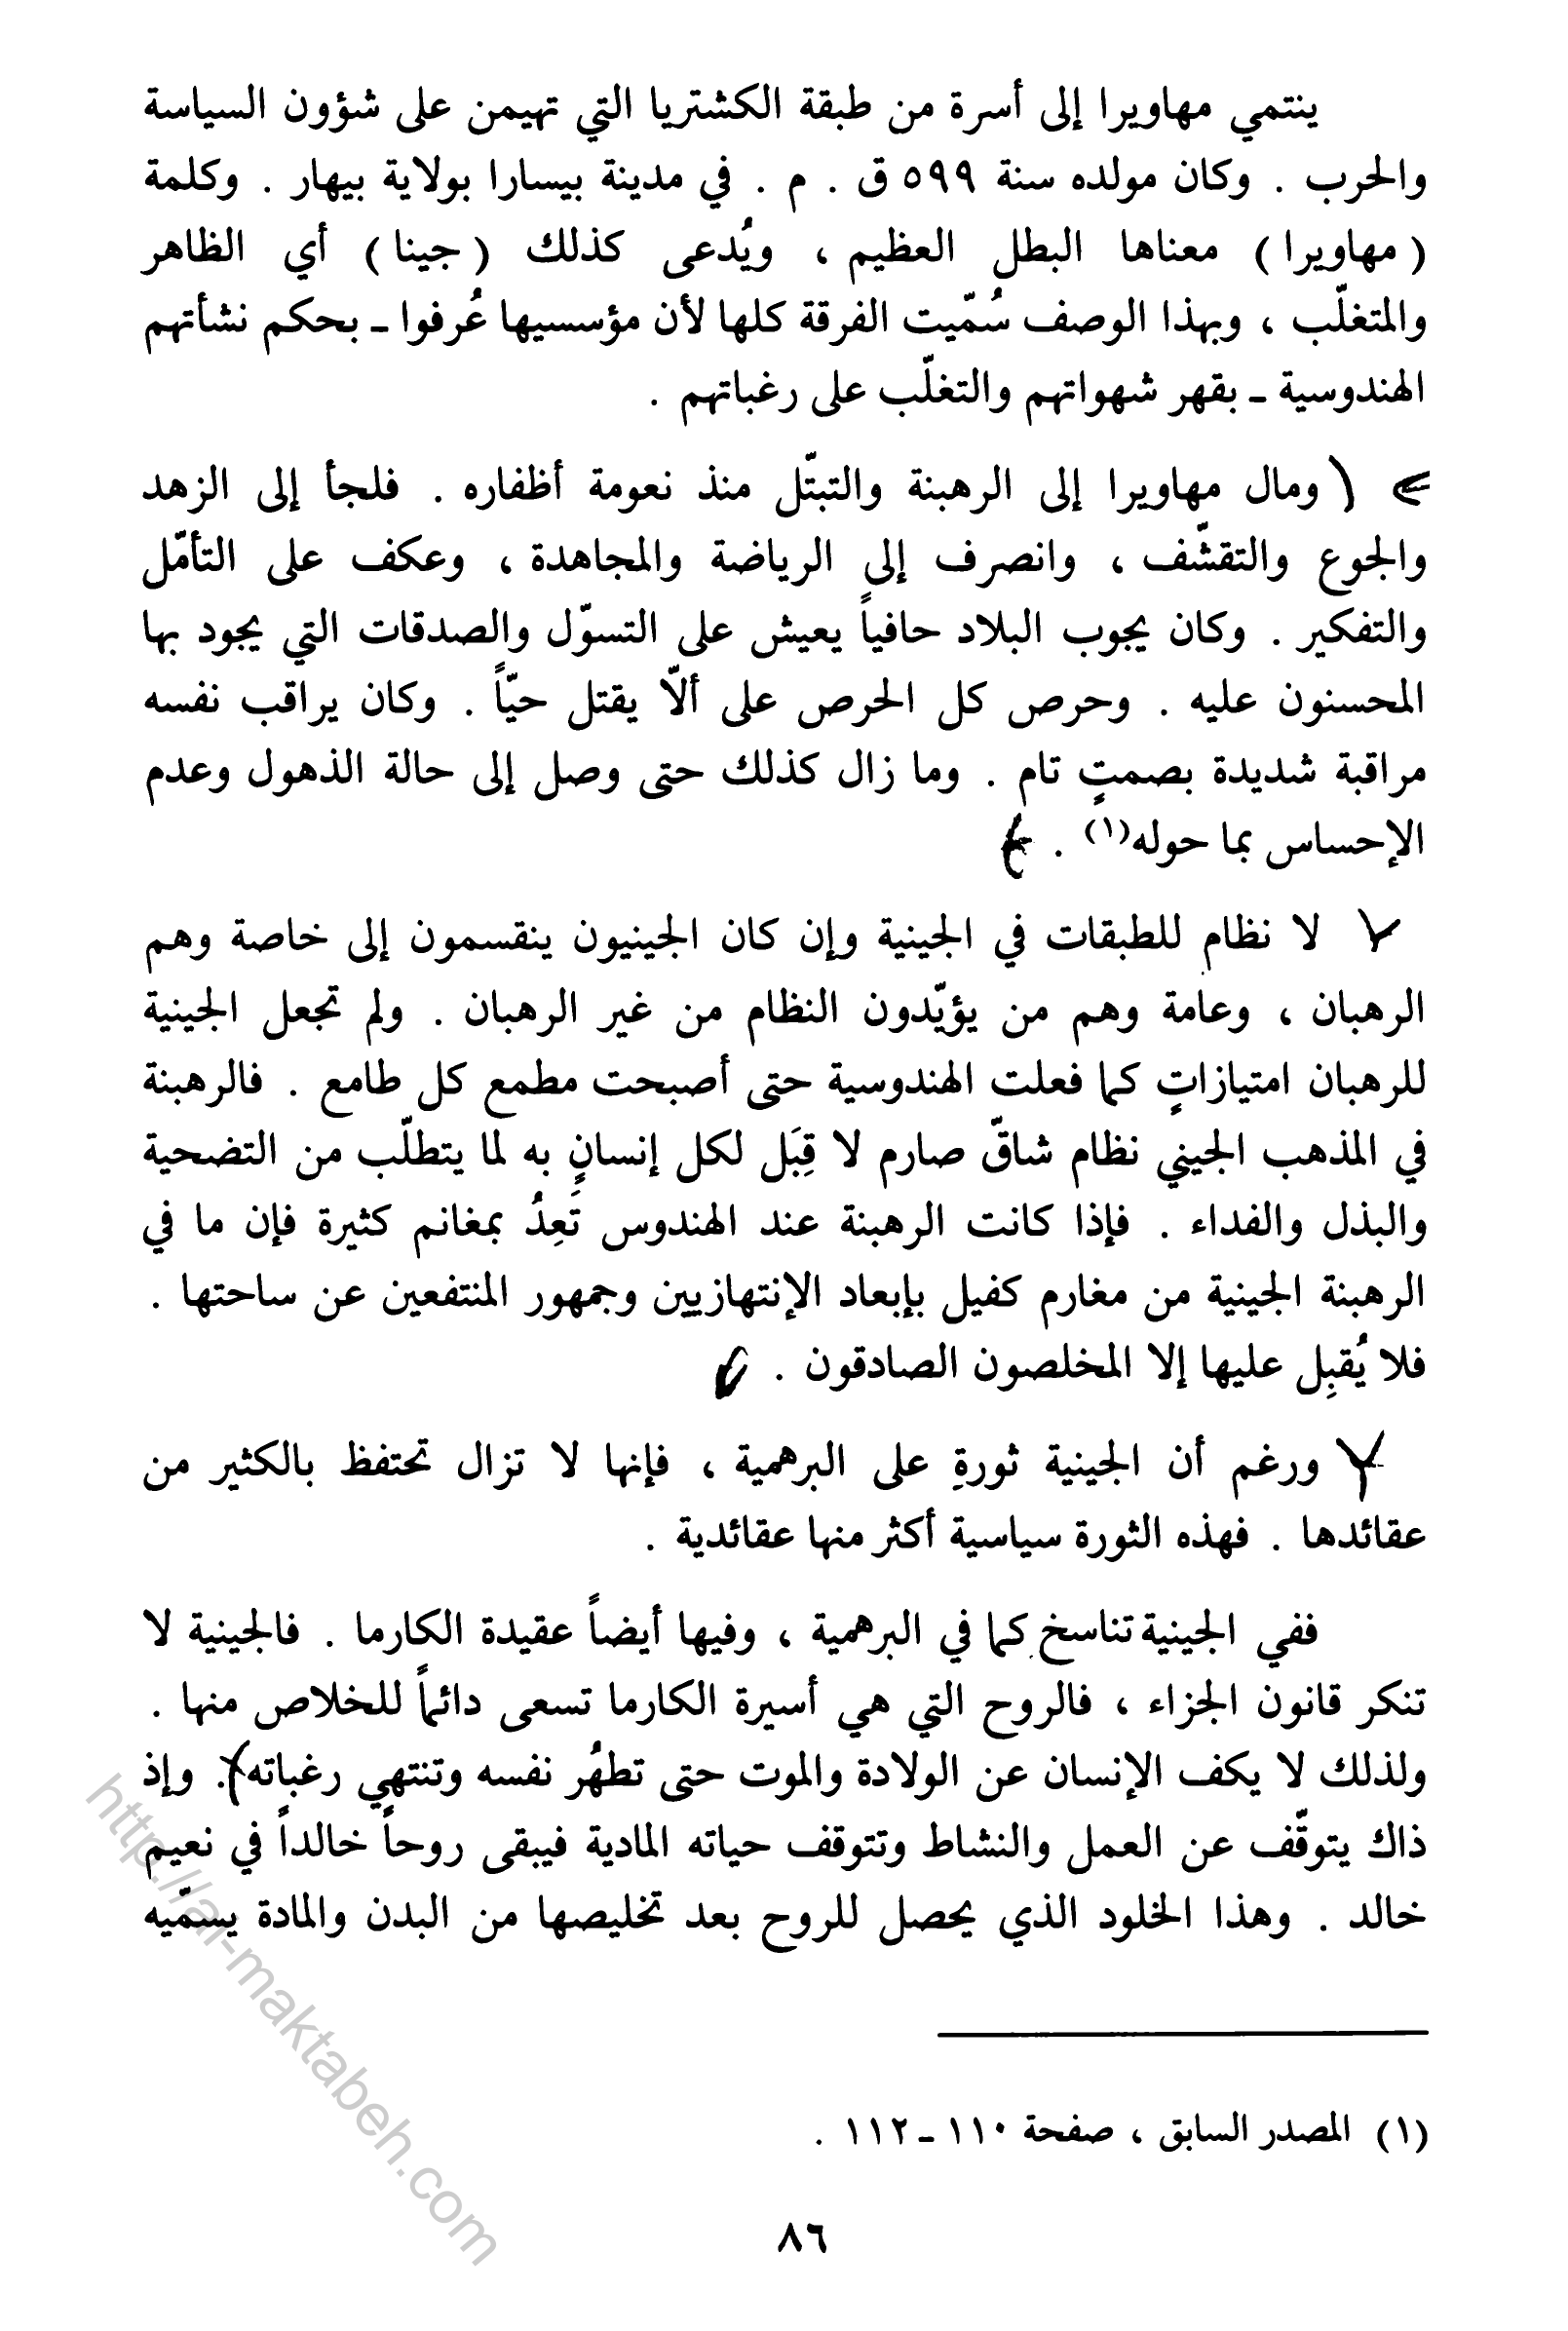 ينتمي مهاويرا إلى أسرة من طبقة الكشتريا التي تهيمن على شؤون السياسة
والحرب . وكان مولده سنة ٥٩٩ ق . م . في مدينة بيسارا بولاية بيهار . وكلمة
( مهاويرا ) معناها البطل العظيم ، ويُدعى كذلك ( جينا ) أي الظاهر
والمتغلّب ، وبهذا الوصف سُمّيت الفرقة كلها لأن مؤسسيها عُرفوا ـ بحكم نشأتهم
الهندوسية ـ بقهر شهواتهم والتغلّب على رغباتهم .
ومال مهاويرا إلى الرهبنة والتبتّل منذ نعومة أظفاره . فلجأ إلى الزهد
والجوع والتقشّف ، وانصرف إلى الرياضة والمجاهدة ، وعكف على التأمّل
والتفكير . وكان يجوب البلاد حافياً يعيش على التسوّل والصدقات التي يجود بها
المحسنون عليه . وحرص كل الحرص على ألاّ يقتل حيّاً . وكان يراقب نفسه
مراقبة شديدة بصمتٍ تام . وما زال كذلك حتى وصل إلى حالة الذهول وعدم
الإحساس بما حوله(١) .
لا نظام للطبقات في الجينية وإن كان الجينيون ينقسمون إلى خاصة وهم
الرهبان ، وعامة وهم من يؤيّدون النظام من غير الرهبان . ولم تجعل الجينية
للرهبان امتيازاتٍ كما فعلت الهندوسية حتى أصبحت مطمع كل طامع . فالرهبنة
في المذهب الجيني نظام شاقّ صارم لا قِبَل لكل إنسانٍ به لما يتطلّب من التضحية
والبذل والفداء . فإذا كانت الرهبنة عند الهندوس تَعِدُ بمغانم كثيرة فإن ما في
الرهبنة الجينية من مغارم كفيل بإبعاد الإنتهازيين وجمهور المنتفعين عن ساحتها .
فلا يُقبِل عليها إلا المخلصون الصادقون .
ورغم أن الجينية ثورةِ على البرهمية ، فإنها لا تزال تحتفظ بالكثير من
عقائدها . فهذه الثورة سياسية أكثر منها عقائدية .
ففي الجينية تناسخ كما في البرهمية ، وفيها أيضاً عقيدة الكارما . فالجينية لا
تنكر قانون الجزاء ، فالروح التي هي أسيرة الكارما تسعى دائماً للخلاص منها .
ولذلك لا يكف الإنسان عن الولادة والموت حتى تطهُر نفسه وتنتهي رغباته . وإذ
ذاك يتوقّف عن العمل والنشاط وتتوقف حياته المادية فيبقى روحاً خالداً في نعيم
خالد . وهذا الخلود الذي يحصل للروح بعد تخليصها من البدن والمادة يسمّيه
(١) المصدر السابق ، صفحة ١١٠ ـ ١١٢ .
٨٦
http://al-maktabeh.com